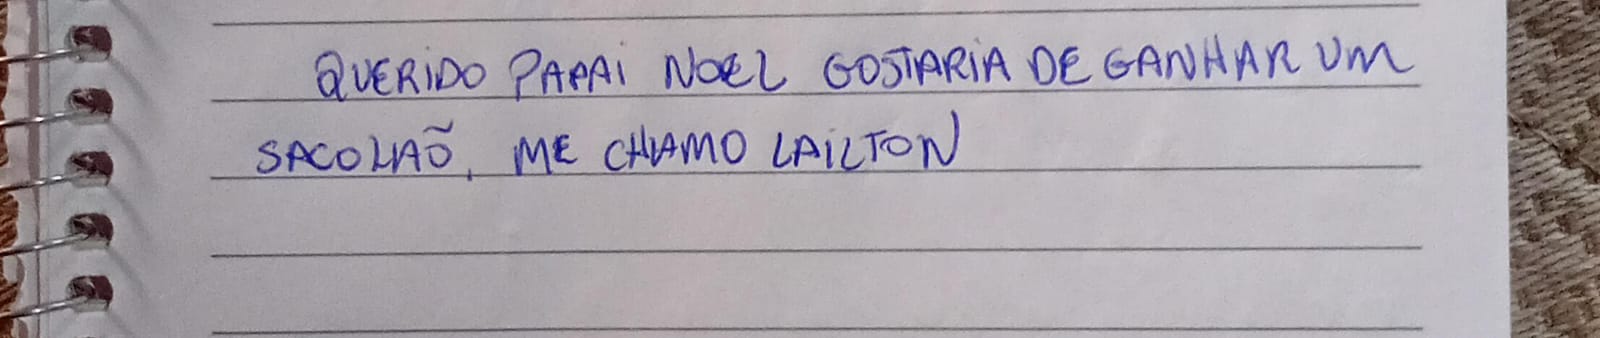 QUERIDO PAPAI NOEL GOSTARIA DE GANHAR UM
SACOLÃO, ME CHAMO LAILTON